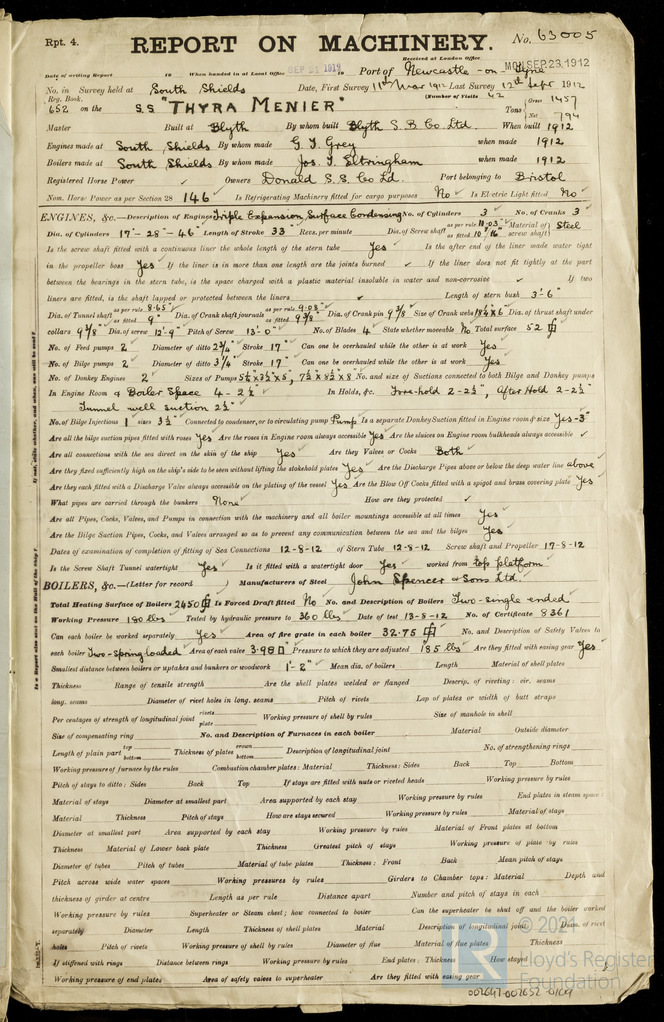 Rpt. 4.
REPORT ON MACHINERY. No. 63005
Received at London Office
Date of writing Report 19 When handed in at Local Office SEP 21 1912 19 Port of Newcastle-on-Tyne MON. SEP. 23. 1912
No. in Survey held at South Shields Date, First Survey 11th Mar 1912 Last Survey 12th Sept 1912
Reg. Book. (Number of Visits 42
652 on the S.S "THYRA MENIER" Tons Gross 1457 Net 794
Master Built at Blyth By whom built Blyth S. B. Co Ltd. When built 1912
Engines made at South Shields By whom made G. T. Grey when made 1912
Boilers made at South Shields By whom made Jos. T. Eltringham when made 1912
Registered Horse Power Owners Donald S.S. Co Ld. Port belonging to Bristol
Nom. Horse Power as per Section 28 146 Is Refrigerating Machinery fitted for cargo purposes No Is Electric Light fitted No
ENGINES, &c.—Description of Engines Triple Expansion, Surface Condensing No. of Cylinders 3 No. of Cranks 3
Dia. of Cylinders 17"-28"-46" Length of Stroke 33" Revs. per minute Dia. of Screw shaft as per rule 10.03" as fitted 10 7/16" Material of screw shaft Steel
Is the screw shaft fitted with a continuous liner the whole length of the stern tube Yes Is the after end of the liner made water tight
in the propeller boss Yes If the liner is in more than one length are the joints burned If the liner does not fit tightly at the part
between the bearings in the stern tube, is the space charged with a plastic material insoluble in water and non-corrosive If two
liners are fitted, is the shaft lapped or protected between the liners Length of stern bush 3'-6"
Dia. of Tunnel shaft as per rule 8.65" as fitted 9" Dia. of Crank shaft journals as per rule 9.08" as fitted 9 3/8" Dia. of Crank pin 9 3/8 Size of Crank webs 18¼x6 Dia. of thrust shaft under
collars 9 3/8" Dia. of screw 12'-9" Pitch of Screw 13'-0" No. of Blades 4 State whether moveable No Total surface 52
No. of Feed pumps 2 Diameter of ditto 2¾" Stroke 17" Can one be overhauled while the other is at work Yes
No. of Bilge pumps 2 Diameter of ditto 3¼" Stroke 17" Can one be overhauled while the other is at work Yes
No. of Donkey Engines 2 Sizes of Pumps No. and size of Suctions connected to both Bilge and Donkey pumps
In Engine Room & Boiler Space 4-2½" In Holds, &c. Fore-hold 2-2½", After Hold 2-2½"
Tunnel well suction 2½"
No. of Bilge Injections 1 sizes 3½" Connected to condenser, or to circulating pump Pump Is a separate Donkey Suction fitted in Engine room & size Yes-3"
Are all the bilge suction pipes fitted with roses Yes Are the roses in Engine room always accessible Yes Are the sluices on Engine room bulkheads always accessible
Are all connections with the sea direct on the skin of the ship Yes Are they Valves or Cocks Both
Are they fixed sufficiently high on the ship's side to be seen without lifting the stokehold plates Yes Are the Discharge Pipes above or below the deep water line above
Are they each fitted with a Discharge Valve always accessible on the plating of the vessel Yes Are the Blow Off Cocks fitted with a spigot and brass covering plate Yes
What pipes are carried through the bunkers None How are they protected
Are all Pipes, Cocks, Valves, and Pumps in connection with the machinery and all boiler mountings accessible at all times Yes
Are the Bilge Suction Pipes, Cocks, and Valves arranged so as to prevent any communication between the sea and the bilges Yes
Dates of examination of completion of fitting of Sea Connections 12-8-12 of Stern Tube 12-8-12 Screw shaft and Propeller 17-8-12
Is the Screw Shaft Tunnel watertight Yes Is it fitted with a watertight door Yes worked from top platform.
BOILERS, &c.—(Letter for record ) Manufacturers of Steel John Spencer & Sons Ltd.
Total Heating Surface of Boilers 2450 Is Forced Draft fitted No No. and Description of Boilers Two-single ended
Working Pressure 180 lbs Tested by hydraulic pressure to 360 lbs Date of test 13-5-12 No. of Certificate 8361
Can each boiler be worked separately Yes Area of fire grate in each boiler 32.75 No. and Description of Safety Valves to
each boiler Two-Spring-loaded Area of each valve 3.98 Pressure to which they are adjusted 185 lbs Are they fitted with easing gear Yes
Smallest distance between boilers or uptakes and bunkers or woodwork 1'-2" Mean dia. of boilers Length Material of shell plates
Thickness Range of tensile strength Are the shell plates welded or flanged Descrip. of riveting: cir. seams
long. seams Diameter of rivet holes in long. seams Pitch of rivets Lap of plates or width of butt straps
Per centages of strength of longitudinal joint rivets plate Working pressure of shell by rules Size of manhole in shell
Size of compensating ring No. and Description of Furnaces in each boiler Material Outside diameter
Length of plain part top bottom Thickness of plates crown bottom Description of longitudinal joint No. of strengthening rings
Working pressure of furnace by the rules Combustion chamber plates: Material Thickness: Sides Back Top Bottom
Pitch of stays to ditto: Sides Back Top If stays are fitted with nuts or riveted heads Working pressure by rules
Material of stays Diameter at smallest part Area supported by each stay Working pressure by rules End plates in steam space:
Material Thickness Pitch of stays How are stays secured Working pressure by rules Material of stays
Diameter at smallest part Area supported by each stay Working pressure by rules Material of Front plates at bottom
Thickness Material of Lower back plate Thickness Greatest pitch of stays Working pressure of plate by rules
Diameter of tubes Pitch of tubes Material of tube plates Thickness: Front Back Mean pitch of stays
Pitch across wide water spaces Working pressures by rules Girders to Chamber tops: Material Depth and
thickness of girder at centre Length as per rule Distance apart Number and pitch of stays in each
Working pressure by rules Superheater or Steam chest; how connected to boiler Can the superheater be shut off and the boiler worked
separately Diameter Length Thickness of shell plates Material Description of longitudinal joint Diam. of rivet
holes Pitch of rivets Working pressure of shell by rules Diameter of flue Material of flue plates Thickness
If stiffened with rings Distance between rings Working pressure by rules End plates: Thickness How stayed
Working pressure of end plates Area of safety valves to superheater Are they fitted with easing gear
© 2021
Lloyd's Register
Foundation